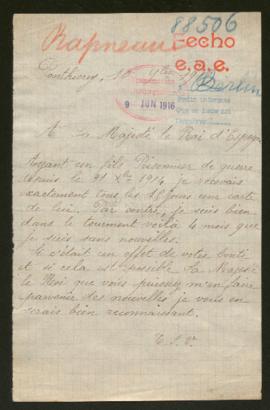 88506
Rapneau
Fecho
e.a.e.
Ponthierry, 
Berlin
9 JUN 1916
A Sa Majesté le Roi d'Espagne
Ayant un fils Prisonnier de guerre
depuis le 21 Xbre 1914, je recevais
exactement tous les 15 jours une carte
de lui. Par contre, je suis bien
dans le tourment voilà 4 mois que
je suis sans nouvelles.
Si c'était un effet de votre bonté
et si cela est possible Sa Majesté
le Roi que vous puissiez m'en faire
parvenir des nouvelles je vous en
serais bien reconnaissant.
T. S. V.